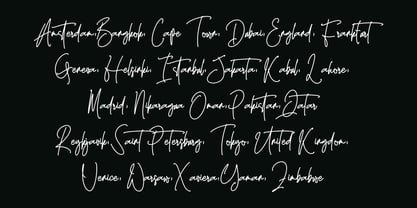 Amsterdam, Bangkok, Cape Town, Dubai, England, Frankfurt
Geneva, Helsinki, Istanbul, Jakarta, Kabul, Lahore,
Madrid, Nikaragwa Oman, Pakistan, Qatar
Reykjavik, Saint Petersburg, Tokyo, United Kingdom,
Venice, Warsaw, Xaviera, Yaman, Zimbabwe